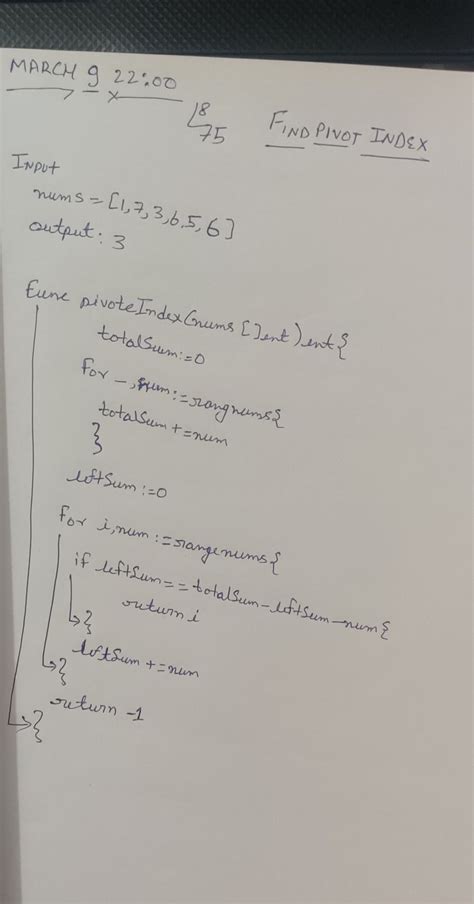 MARCH 9 22:00
8
75
FIND PIVOT INDEX
INPUT
nums = [1,7,3,6,5,6]
output: 3
func pivoteIndex(nums []int) int{
totalSum:=0
for _, num:=rangnums{
totalSum+=num
}
leftSum:=0
for i,num:=rangenums{
if leftSum==totalSum-leftSum-num{
return i
}
leftSum+=num
}
return -1
}